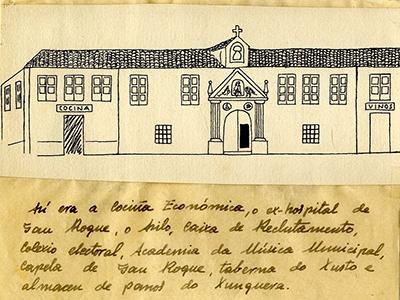 COCINA
VINOS
Así era a Cociña Económica, o ex-hospital de
San Roque, o hilo, Caixa de Reclutamento,
Colexio electoral, Academia da Música Municipal,
Capela de San Roque, taberna do Xusto e
almacen de panos do Xunguera.